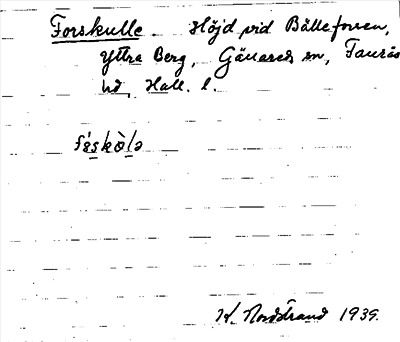 Forskulle Höjd vid Bälleforsen,
Yttra Berg, Gällareds sn, Faurås
hd, Hall. l.
K. Nordstrand 1939.